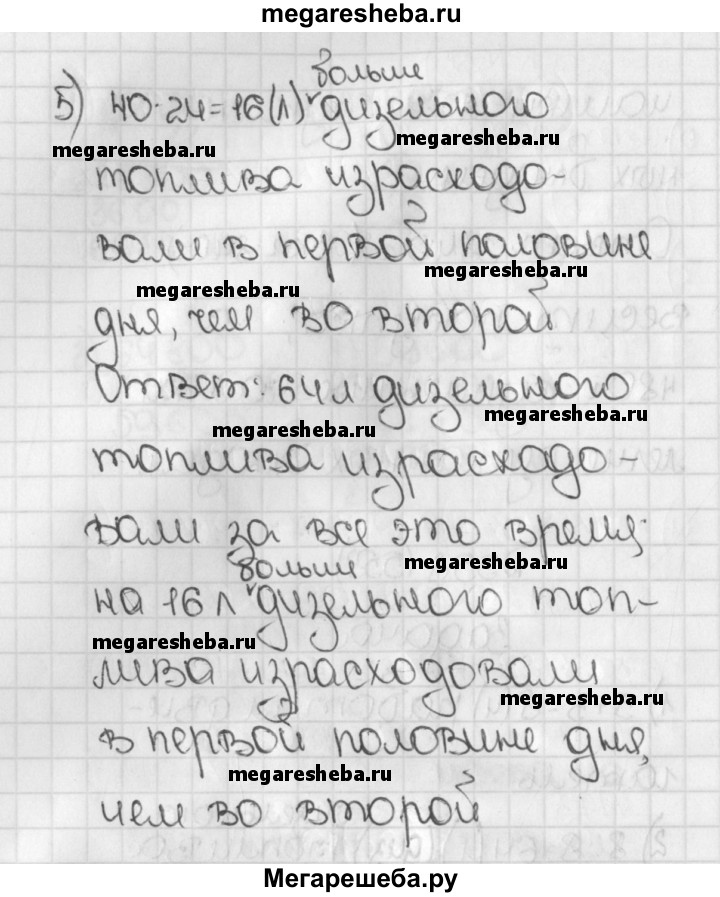 megaresheba.ru
больше
5) 40·24=16(л) дизельного
megaresheba.ru
megaresheba.ru
топлива израсходо-
вали в первой половине
megaresheba.ru
megaresheba.ru
дня, чем во второй
Ответ: 64л дизельного
megaresheba.ru
megaresheba.ru
топлива израсходо-
вали за все это время;
больше
megaresheba.ru
на 16 л дизельного топ-
megaresheba.ru
лива израсходовали
megaresheba.ru
в первой половине дня,
megaresheba.ru
чем во второй
Мегарешеба.ру